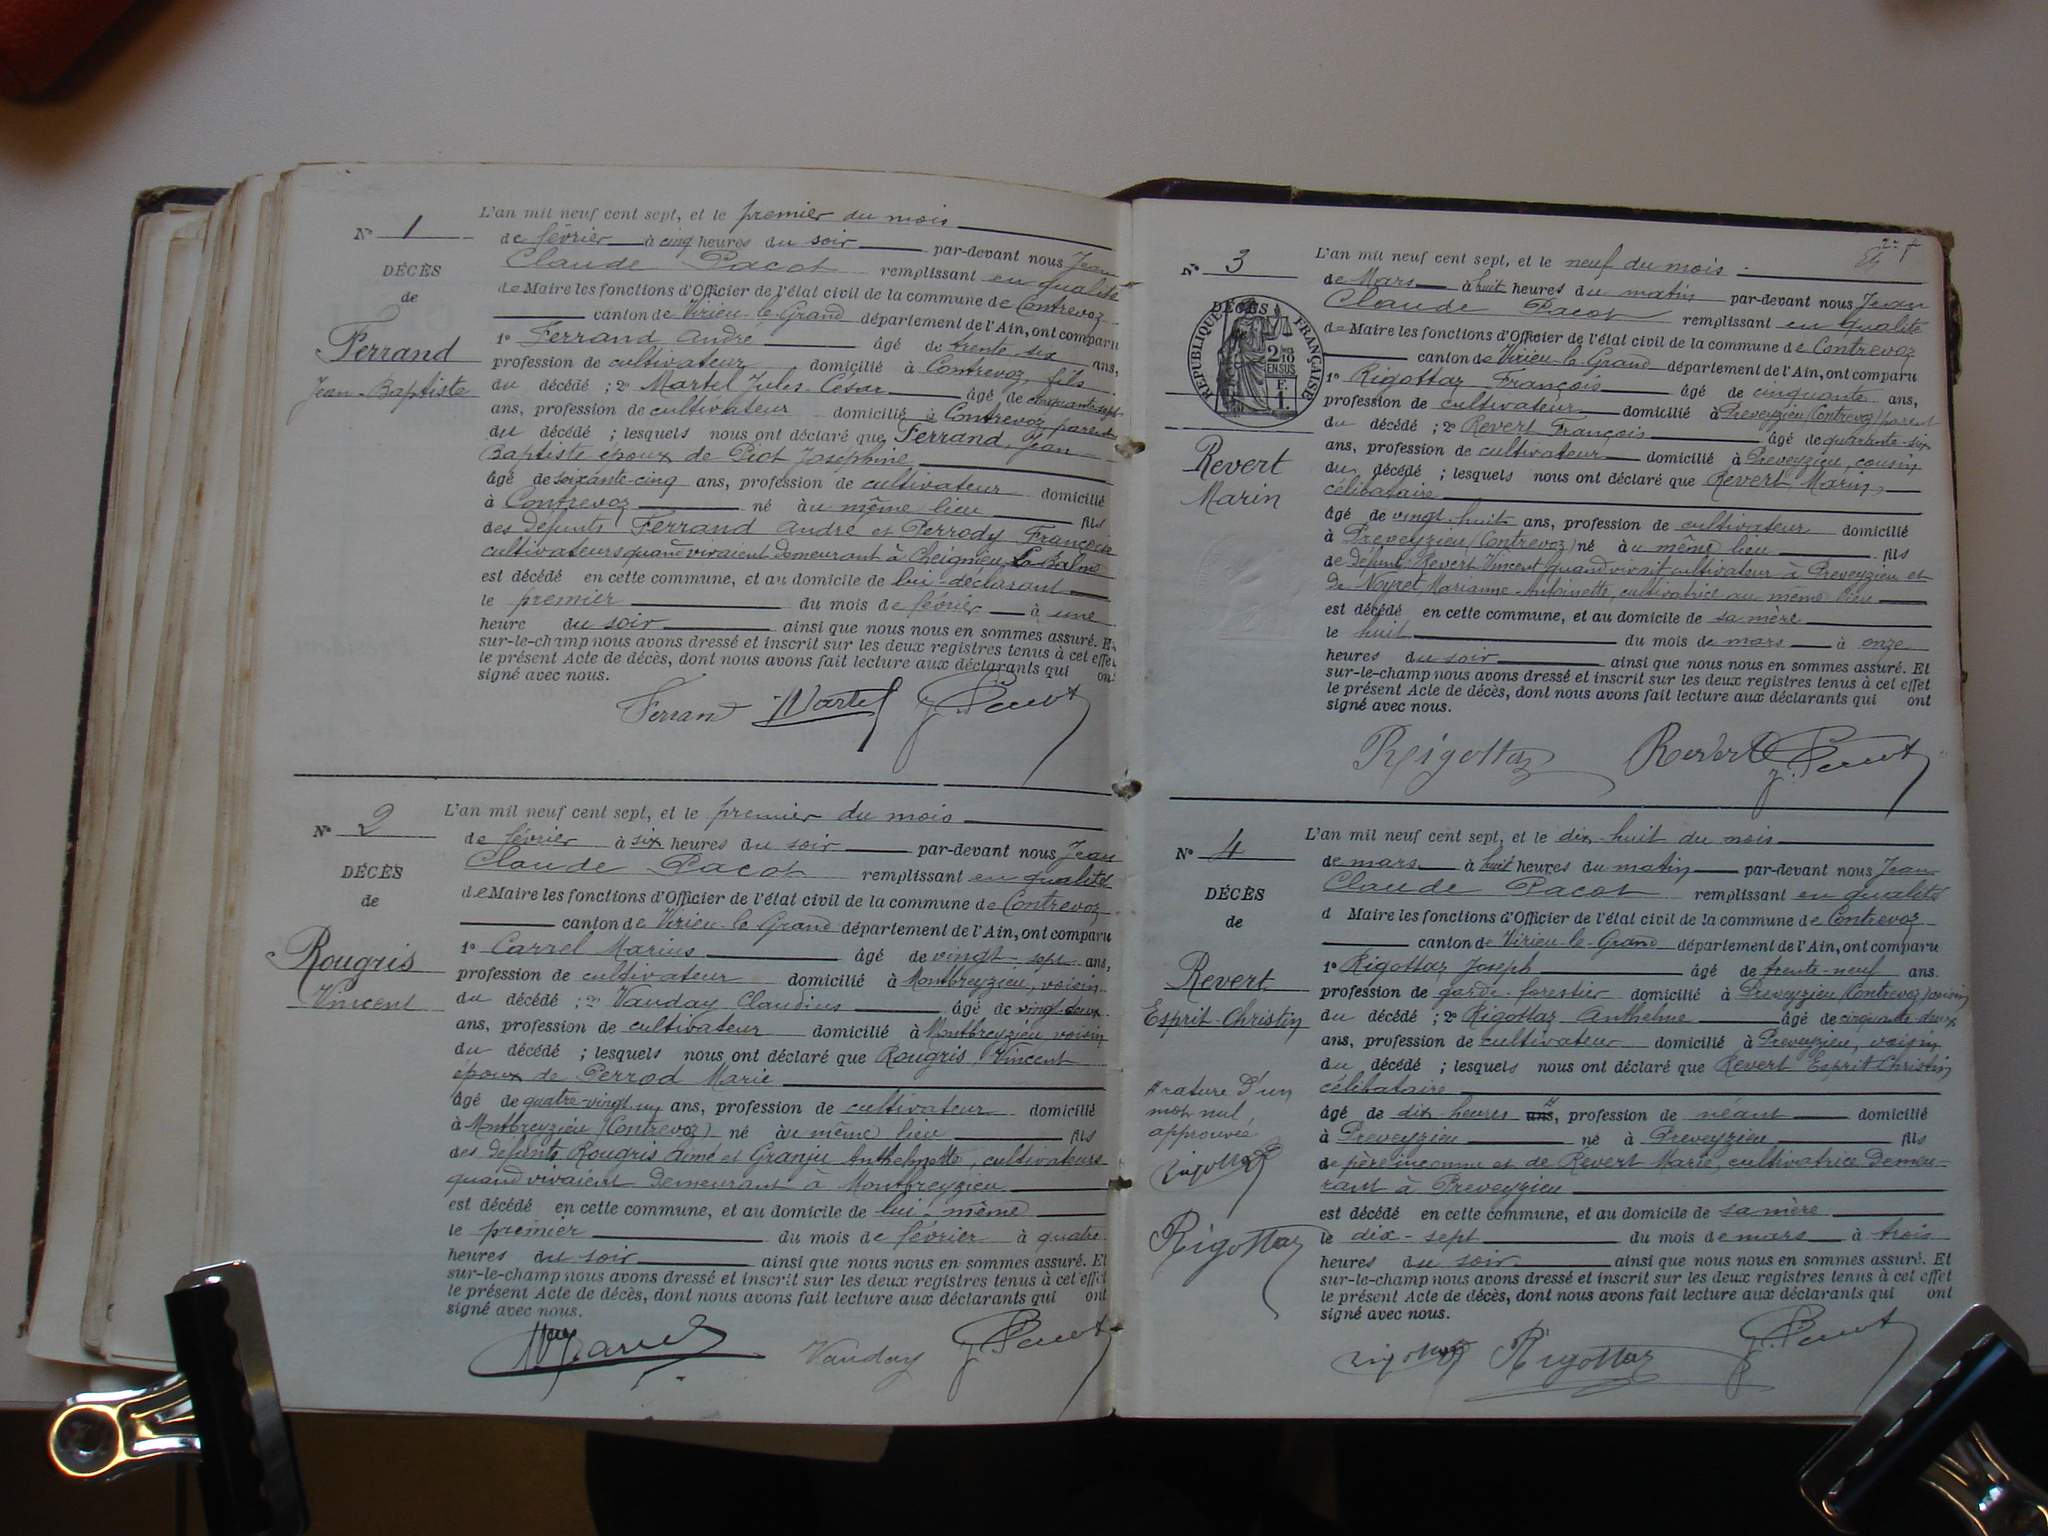 L'an mil neuf cent sept, et le premier du mois
N° 1
de février à cinq heures du soir par-devant nous Jean
DÉCÈS
Claude Pacot remplissant en qualité
de
de Maire les fonctions d'Officier de l'état civil de la commune de Contrevoz
canton de Virieu-le-Grand département de l'Ain, ont comparu
Ferrand
1° Ferrand André âgé de trente-six ans,
profession de cultivateur domicilié à Contrevoz, fils
Jean-Baptiste
du décédé ; 2° Martel Jules César âgé de cinquante-sept
ans, profession de cultivateur domicilié à Contrevoz, parent
du décédé ; lesquels nous ont déclaré que Ferrand Jean-
Baptiste époux de Piot Joséphine
âgé de soixante-cinq ans, profession de cultivateur domicilié
à Contrevoz né au même lieu fils
des défunts Ferrand André et Perrody Françoise
cultivateurs quand vivaient demeurant à Cheignieu La Balme
est décédé en cette commune, et au domicile de lui-déclarant
le premier du mois de février à une
heure du soir ainsi que nous nous en sommes assuré. Et
sur-le-champ nous avons dressé et inscrit sur les deux registres tenus à cet effet
le présent Acte de décès, dont nous avons fait lecture aux déclarants qui ont
signé avec nous.
Ferrand Martel J. Pacot
L'an mil neuf cent sept, et le premier du mois
N° 2
de février à six heures du soir par-devant nous Jean
DÉCÈS
Claude Pacot remplissant en qualité
de
de Maire les fonctions d'Officier de l'état civil de la commune de Contrevoz
canton de Virieu-le-Grand département de l'Ain, ont comparu
Rougris
1° Carrel Marius âgé de vingt-sept ans,
Vincent
profession de cultivateur domicilié à Montbreyzieu, voisin
du décédé ; 2° Vauday Claudius âgé de vingt-deux
ans, profession de cultivateur domicilié à Montbreyzieu, voisin
du décédé ; lesquels nous ont déclaré que Rougris Vincent
époux de Perrod Marie
âgé de quatre-vingt un ans, profession de cultivateur domicilié
à Montbreyzieu (Contrevoz) né au même lieu fils
des défunts Rougris Aimé et Granju Anthelmette, cultivateurs
quand vivaient demeurant à Montbreyzieu
est décédé en cette commune, et au domicile de lui-même
le premier du mois de février à quatre
heures du soir ainsi que nous nous en sommes assuré. Et
sur-le-champ nous avons dressé et inscrit sur les deux registres tenus à cet effet
le présent Acte de décès, dont nous avons fait lecture aux déclarants qui ont
signé avec nous.
Vauday J. Pacot
L'an mil neuf cent sept, et le neuf du mois
N° 3
de Mars à huit heures du matin par-devant nous Jean
DÉCÈS
RÉPUBLIQUE FRANÇAISE
Claude Pacot remplissant en qualité
de Maire les fonctions d'Officier de l'état civil de la commune de Contrevoz
canton de Virieu-le-Grand département de l'Ain, ont comparu
1° Rigottaz François âgé de cinquante ans,
profession de cultivateur domicilié à Preveyzieu (Contrevoz) parent
du décédé ; 2° Revert François âgé de quarante-six
Revert
ans, profession de cultivateur domicilié à Preveyzieu, cousin
Marin
du décédé ; lesquels nous ont déclaré que Revert Marin
célibataire
âgé de vingt-huit ans, profession de cultivateur domicilié
à Preveyzieu (Contrevoz) né au même lieu fils
de défunt Revert Vincent quand vivait cultivateur à Preveyzieu et
de Noyret Marianne-Antoinette, cultivatrice au même lieu
est décédé en cette commune, et au domicile de sa mère
le huit du mois de mars à onze
heures du soir ainsi que nous nous en sommes assuré. Et
sur-le-champ nous avons dressé et inscrit sur les deux registres tenus à cet effet
le présent Acte de décès, dont nous avons fait lecture aux déclarants qui ont
signé avec nous.
Rigottaz Revert J. Pacot
L'an mil neuf cent sept, et le dix-huit du mois
N° 4
de mars à huit heures du matin par-devant nous Jean
DÉCÈS
Claude Pacot remplissant en qualité
de
d Maire les fonctions d'Officier de l'état civil de la commune de Contrevoz
canton de Virieu-le-Grand département de l'Ain, ont comparu
Revert
1° Rigottaz Joseph âgé de trente-neuf ans.
profession de garde-forestier domicilié à Preveyzieu (Contrevoz) voisin
Esprit-Christin
du décédé ; 2° Rigottaz Anthelme âgé de cinquante-deux
ans, profession de cultivateur domicilié à Preveyzieu, voisin
du décédé ; lesquels nous ont déclaré que Revert Esprit Christin
célibataire
rature d'un
mot nul
approuvée
âgé de dix heures ans, profession de néant domicilié
à Preveyzieu né à Preveyzieu fils
de père inconnu et de Revert Marie, cultivatrice demeu-
rant à Preveyzieu
est décédé en cette commune, et au domicile de sa mère
Rigottaz
le dix-sept du mois de mars à trois
heures du soir ainsi que nous nous en sommes assuré. Et
sur-le-champ nous avons dressé et inscrit sur les deux registres tenus à cet effet
le présent Acte de décès, dont nous avons fait lecture aux déclarants qui ont
signé avec nous.
Rigottaz J. Pacot